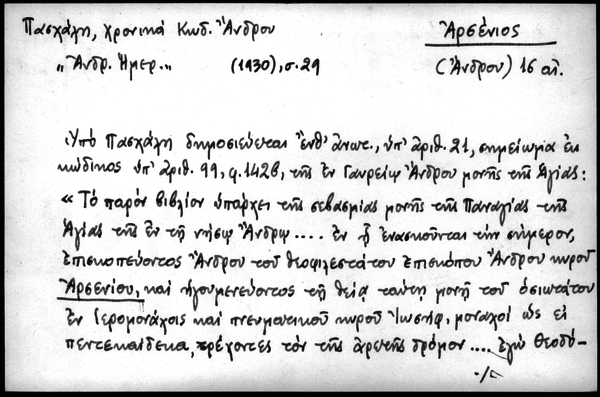 Πασχάλη, χρονικά Κωδ. Ἄνδρου
Ἀρσένιος
„Ἀνδρ. Ἡμερ.„ (1930), σ. 29
(Ἄνδρου) 16 αἰ.
Ὑπό Πασχάλη δημοσιεύεται ἔνθ' ἄνωτ., ὑπ' ἀριθ. 21, σημείωμα ἐκ
κώδικος ὑπ' ἀριθ. 99, φ. 142β, τῆς ἐν Γαυρείῳ Ἄνδρου μονῆς τῆς Ἁγίας:
« Τὸ παρὸν βιβλίον ὑπάρχει τῆς σεβασμίας μονῆς τῆς Παναγίας τῆς
Ἁγίας τῆς ἐν τῇ νήσῳ Ἄνδρῳ .... ἐν ᾗ ἐνασκοῦνται τὴν σήμερον,
ἐπισκοπεύοντος Ἄνδρου τοῦ θεοφιλεστάτου ἐπισκόπου Ἄνδρου κυροῦ
Ἀρσενίου, καὶ ἡγουμενεύοντος τῇ θείᾳ ταύτῃ μονῇ τοῦ ὁσιωτάτου
ἐν ἱερομονάχοις καὶ πνευματικοῦ κυροῦ Ἰωσήφ, μοναχοὶ ὡς εἰ
πεντεκαίδεκα, τρέχοντες τὸν τῆς ἀρετῆς δρόμον .... ἐγὼ Θεοδό-
./.